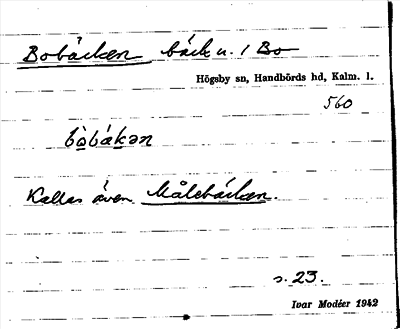 Bobäcken bäck u. / Bo
Högsby sn, Handbörds hd, Kalm. l.
560
bòbákən
Kallas även Målebäcken.
s. 23.
Ivar Modéer 1942